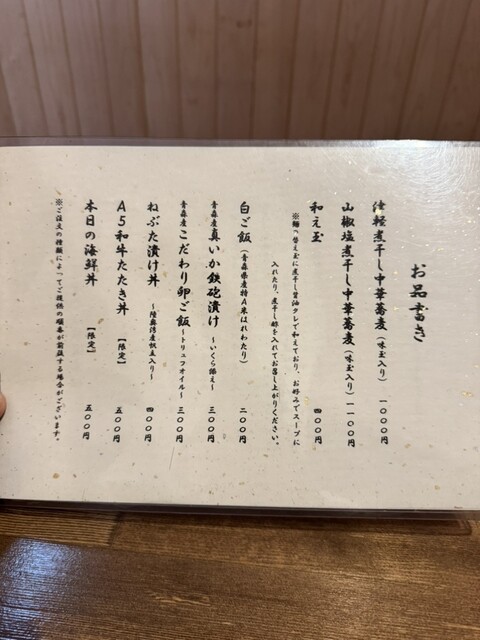 お品書き
津軽煮干し中華蕎麦（味玉入り）　一〇〇〇円
山椒塩煮干し中華蕎麦（味玉入り）一一〇〇円
和え玉　四〇〇円
※麺の替え玉に煮干し醤油タレで和えており、お好みでスープに
入れたり、煮干し酢を入れてお召し上がりください。
白ご飯（青森県産特A米はれわたり）　二〇〇円
青森産真いか鉄砲漬け～いくら添え～　三〇〇円
青森産こだわり卵ご飯～トリュフオイル～　三〇〇円
ねぶた漬け丼　～陸奥湾産帆立入り～　四〇〇円
A5和牛たたき丼　【限定】　五〇〇円
本日の海鮮丼　【限定】　五〇〇円
※ご注文の種類によってご提供の順番が前後する場合がございます。